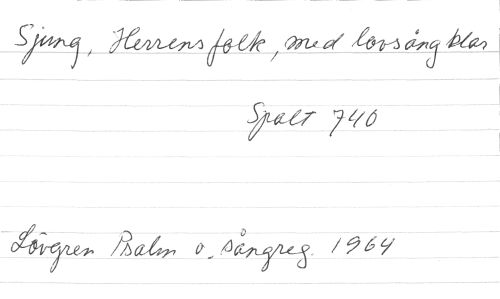 Sjung, Herrens folk, med lovsång klar
Spalt 740
Lövgren Psalm o. sångreg. 1964